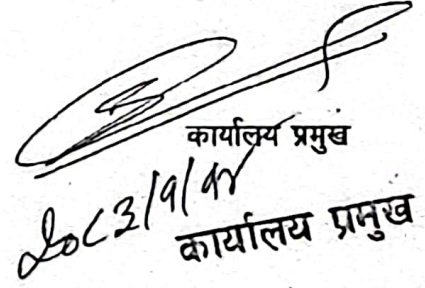 कार्यालय प्रमुख
२०८३/१/१४
कार्यालय प्रमुख